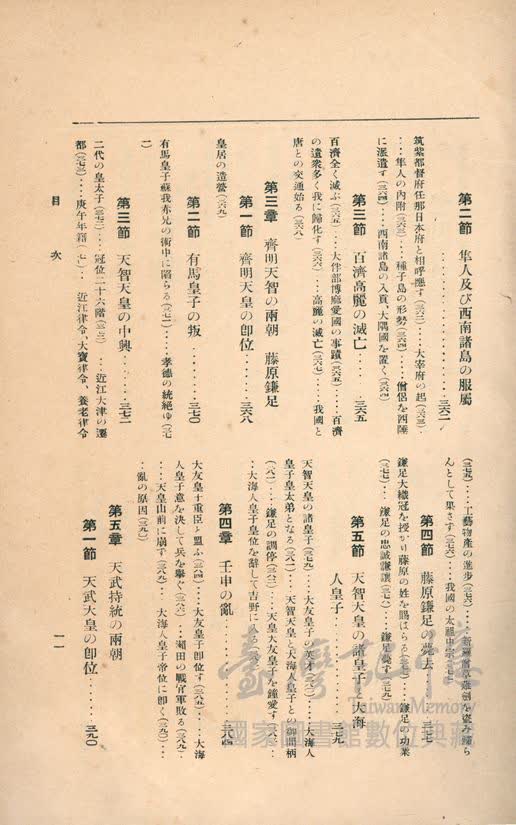 第二節 隼人及び西南諸島の服屬
……三六二
筑紫都督府任那日本府と相呼應す(三六二)……大宰府の起(三六三)・
・・・・隼人の內附(三六三)……種子島の形勢(三六四)……僧侶を西陲
に派遣す(三六四)……西南諸島の入貢、大隅國を置く(三六四)
第三節 百濟高麗の滅亡……三六五
百濟全く滅ぶ(三六五)……大伴部博麻愛國の事蹟(三六五)……百濟
の遺衆多く我に歸化す(三六六)……高麗の滅亡(三六七)……我國と
唐との交通始る(三六八)
第三章 齊明天智の兩朝 藤原鎌足
第一節 齊明天皇の卽位……三六八
皇居の造營(三六九)
第二節 有馬皇子の叛……三七〇
有馬皇子蘇我赤兄の術中に陷らる(三七一)……孝德の統絕ゆ(三七
二)
第三節 天智天皇の中興……三七二
二代の皇太子(三七二)……冠位二十六階(三七三)……近江大津の遷
都(三七三)……庚午年籍……近江律令、大寶律令、養老律令
目次
(三七五)……工藝物產の進步(三七六)……新羅僧草薙劍を盜み歸ら
んとして果さず(三七六)……我國の太祖太宗
第四節 藤原鎌足の薨去……三七七
鎌足大織冠を授かり藤原の姓を賜はらる(三七七)……鎌足の功業
(三七七)……鎌足の忠誠謙讓(三七八)……鎌足薨す(三七九)
第五節 天智天皇の諸皇子と大海
人皇子……三七九
天智天皇の諸皇子(三七九)……大友皇子の英才(三八〇)……大海人
皇子皇太弟となる(三八一)……天智天皇と大海人皇子との御間柄
(三八一)……鎌足の調停(三八二)……天皇大友皇子を鐘愛す
・・大海人皇子皇位を辭して吉野に入る
第四章 壬申の亂……三八四
大友皇子重臣と盟ふ(三八四)……大友皇子卽位す(三八五)……大海
人皇子意を決して兵を擧ぐ(三八六)……瀨田の戰官軍敗る(三八九)・
・・・天皇山前に崩ず(三八九)……大海人皇子帝位に卽く(三九〇)……
・・亂の原因(三九〇)
第五章 天武持統の兩朝
第一節 天武天皇の卽位……三九〇
一一
臺灣記憶
Taiwan Memory
國家圖書館數位典藏